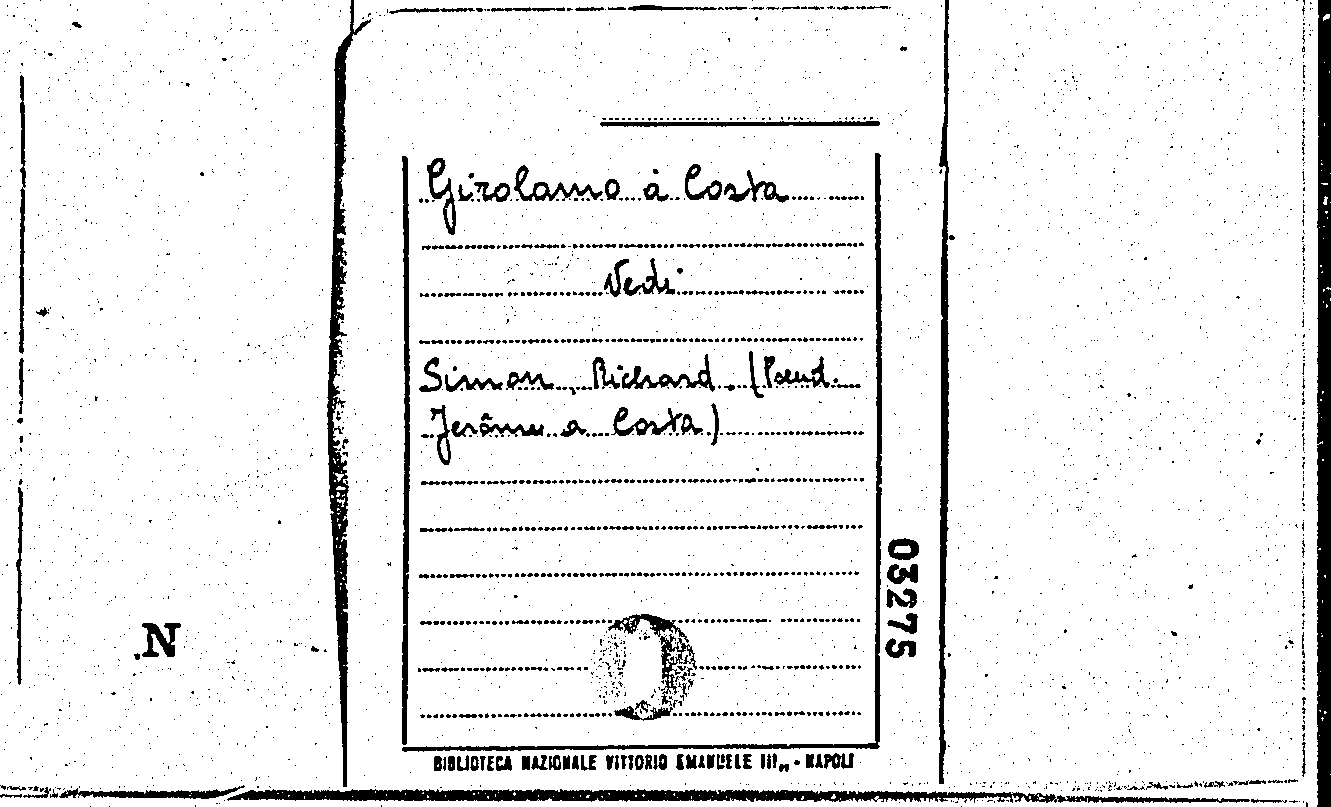 Girolamo à Costa
Vedi
Simon, Richard. (Pseud.
Jerôme a Costa)
03275
N
BIBLIOTECA NAZIONALE VITTORIO EMANUELE III„ - NAPOLI